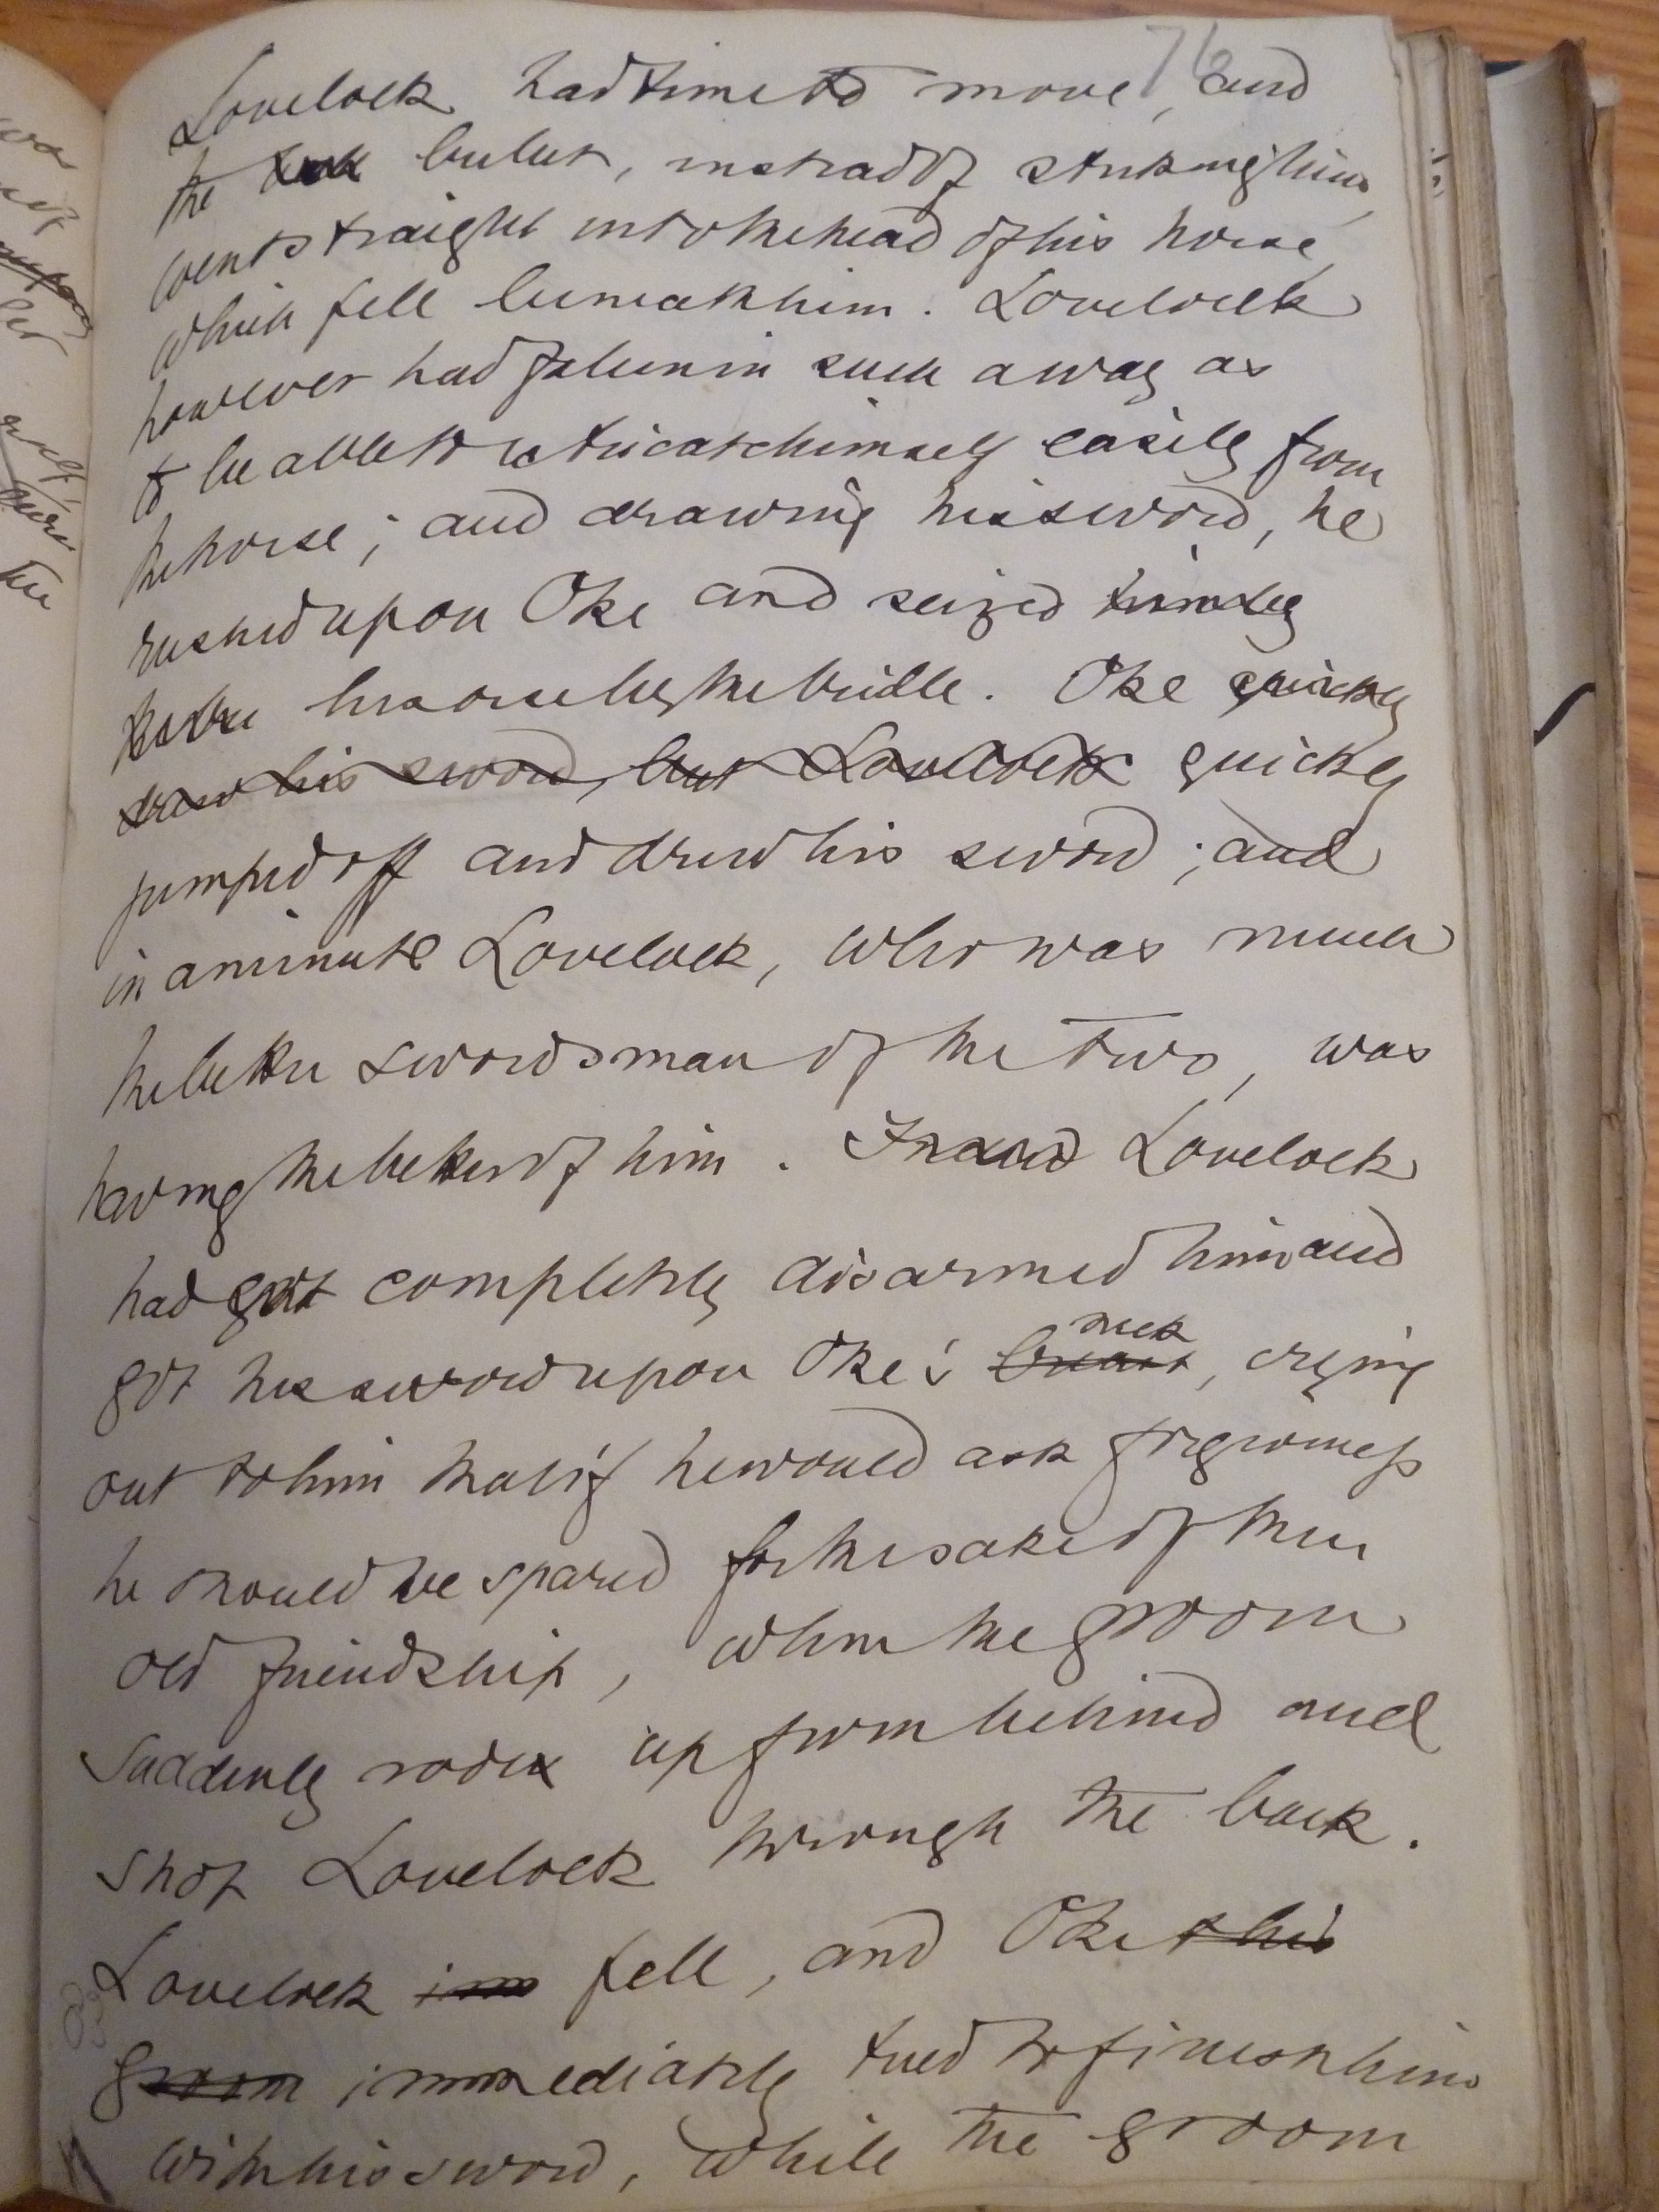 76
Lovelock had time to move, and
the bullet, instead of striking him,
went straight into the head of his horse,
which fell beneath him. Lovelock
however had fallen in such a way as
to be able to extricate himself easily from
the horse; and drawing his sword, he
rushed upon Oke and seized him by
his horse by the bridle. Oke quickly
draw his sword, but Lovelock quickly
jumped off and drew his sword; and
in a minute Lovelock, who was much
the better swordsman of the two, was
having the better of him. Lovelock
had got completely disarmed him and
neck
got his sword upon Oke's breast, crying
out to him that if he would ask forgiveness
he should be spared for the sake of their
old friendship, when the groom
suddenly rode up from behind and
shot Lovelock through the back.
Lovelock im fell, and Oke & his
groom immediately tried to finish him
with his sword, while the groom